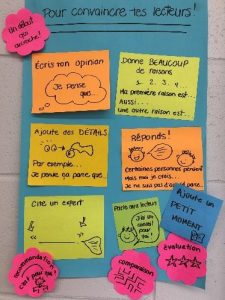 Pour convaincre tes lecteurs!
Un début
qui
accroche!
Écris ton opinion
Je pense
que...
Donne BEAUCOUP
de raisons
1. 2. 3. 4.
Ma première raison est...
Aussi...
Une autre raison est...
Ajoute des DÉTAILS
Par exemple...
Je pense ça parce que...
Réponds!
Certaines personnes pensent
Mais moi je crois...
Je ne suis pas d'accord parce
Cite un expert
Parle aux lecteurs
J'ai un
conseil
pour
toi!
Ajoute un
PETIT
MOMENT
recommendation
comparaison
évaluation